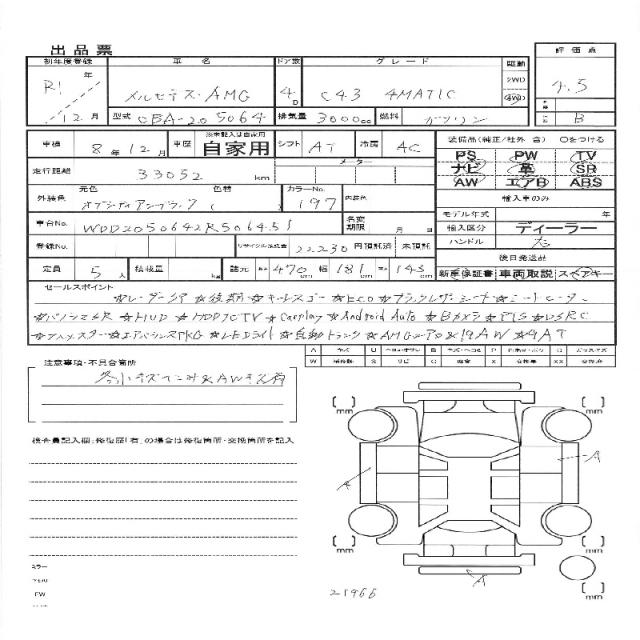 出品票
初年度登録 車名 ドア数 グレード 駆動 評価点
R1 年 12月 メルセデス・AMG 4D C43 4MATIC 2WD 4WD 4.5
型式 CBA-205064 排気量 3000cc 燃料 ガソリン B
車検 8年12月 車歴 ※未記入は自家用 自家用 シフト AT 冷房 AC
装備品(純正/社外 含) ○をつける
PS PW TV
ナビ 革 SR
AW エアB ABS
走行距離 33052 km メーター
元色 色替 カラーNo. 内装色
外装色 オブシディアンブラック ( ) 197
輸入車のみ
モデル年式 年
輸入区分 ディーラー
ハンドル 左
車台No. WDD2050642R506451 名変期限 月 日
登録No. リサイクル預託金 22230 円預託済 未預託
定員 5人 積載量 kg 諸元 長さ 470cm 幅 181cm 高さ 143cm
後日発送品
新車保証書 車両取説 スペアキー
セールスポイント
☆レーダーセーフ ☆後期 ☆キーレスゴー ☆ECO ☆ブラックレザーシート ☆シートヒーター
☆パノラマSR ☆HUD ☆HDDナビTV ☆Carplay ☆Android Auto ☆Bカメラ ☆PTS ☆DSRC
☆ブルメスター ☆エアバランスPKG ☆LEDライト ☆自動トランク ☆AMGエアロ&19AW ☆9AT
注意事項・不具合箇所
各小キズヘコミ&AWキズ有
検査員記入欄:修復歴「有」の場合は修復箇所・交換箇所を記入
[ ] mm
[ ] mm
A
A
A
[ ] mm
[ ] mm
[ ] mm
21966